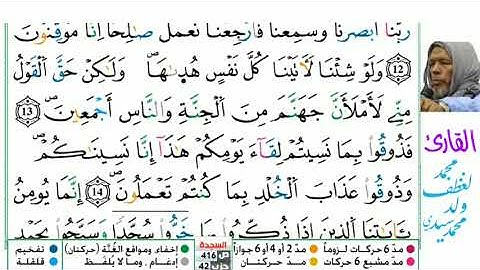 رَبَّنَا أَبْصَرْنَا وَسَمِعْنَا فَارْجِعْنَا نَعْمَلْ صَٰلِحًا اِنَّا مُوقِنُونَۖ
12 وَلَوْ شِئْنَا لَأَتَيْنَا كُلَّ نَفْسٍ هُدَىٰهَاۖ وَلَٰكِنْ حَقَّ اَ۬لْقَوْلُ
مِنِّے لَأَمْلَأَنَّ جَهَنَّمَ مِنَ اَ۬لْجِنَّةِ وَالنَّاسِ أَجْمَعِينَۖ 13
فَذُوقُواْ بِمَا نَسِيتُمْ لِقَآءَ يَوْمِكُمْ هَٰذَآ إِنَّا نَسِينَٰكُمْۖ
وَذُوقُواْ عَذَابَ اَ۬لْخُلْدِ بِمَا كُنتُمْ تَعْمَلُونَۖ 14 إِنَّمَا يُومِنُ
بِـَٔايَٰتِنَا اَ۬لذِينَ إِذَا ذُكِّرُواْ بِهَا خَرُّواْ سُجَّداٗ وَسَبَّحُواْ بِحَمْدِ
القارئ
محمد
لغظف
ولد
محمد سيدي
مدّ 6 حركات لزوماً مدّ 2 أو 4 أو 6 جوازاً
مدّ مشبع 6 حركات مدّ حركتان
السجدة
ص 416
42
إخفاء ومواقع الغُنَّة (حركتان) تفخيم
إدغام، وما لا يُلفَظ قلقلة